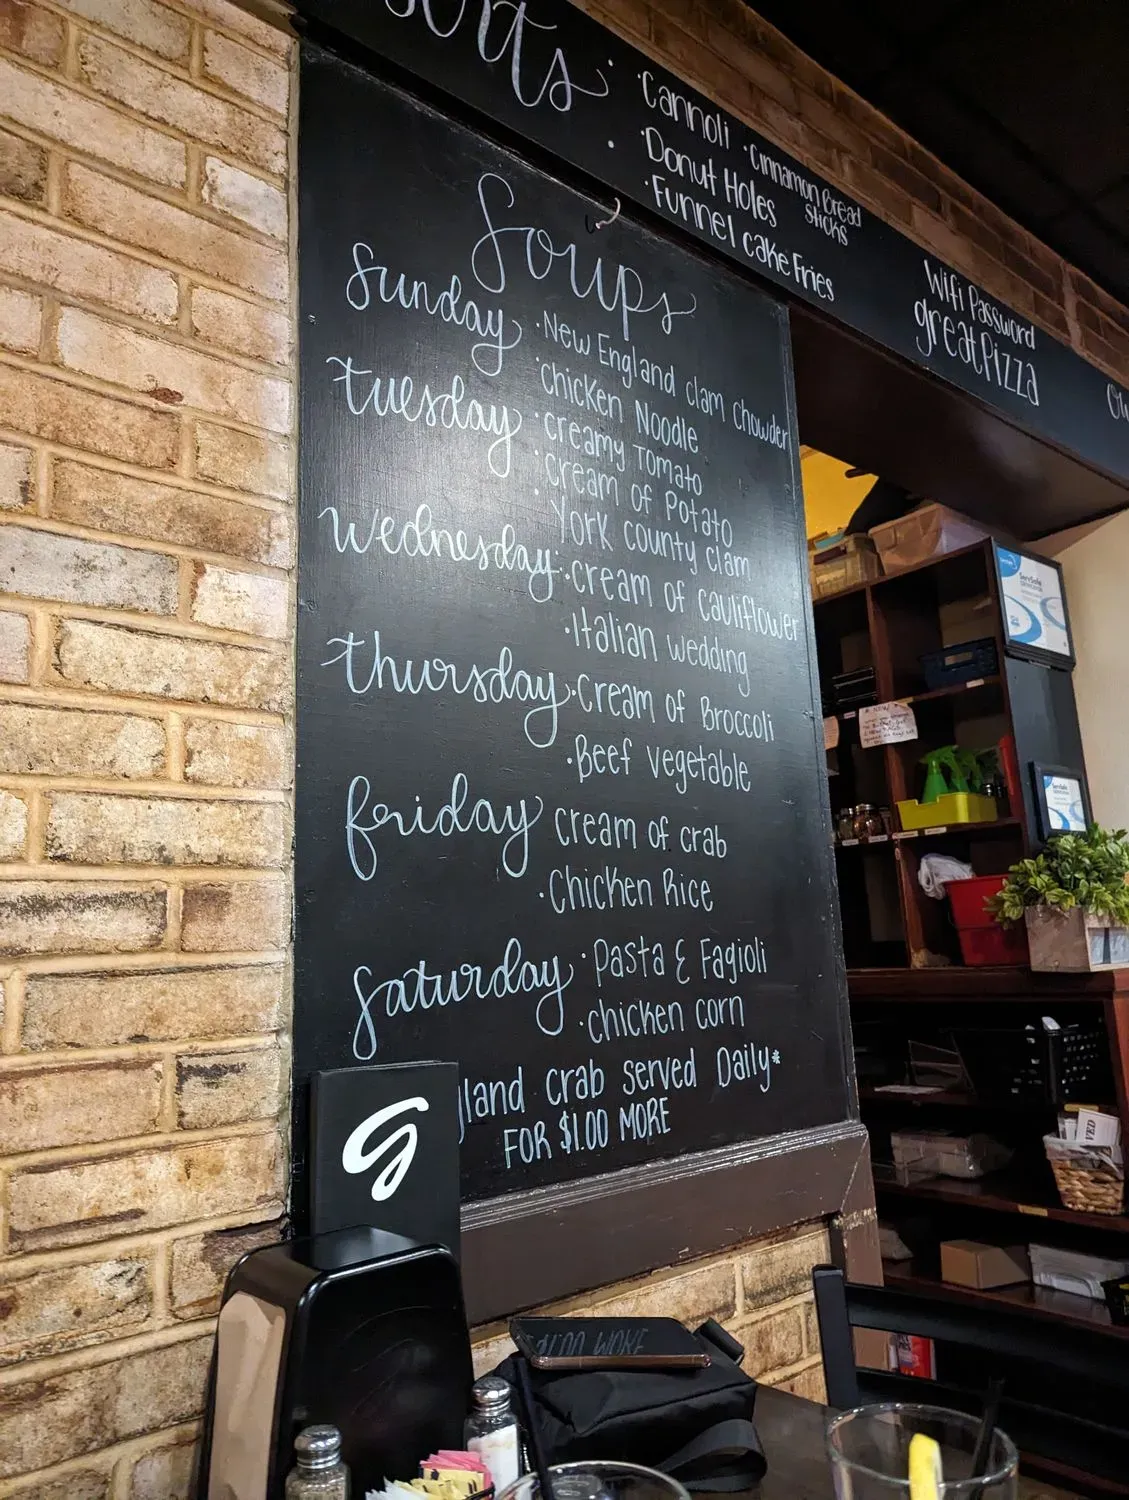 Cannoli
Donut Holes
Funnel cake Fries
Cinnamon Bread
Sticks
Wifi Password
greatPizza
Soups
Sunday
· New England clam chowder
· chicken Noodle
Tuesday
· creamy Tomato
· cream of Potato
· York county clam
Wednesday
· cream of cauliflower
· Italian wedding
Thursday
· Cream of Broccoli
· Beef vegetable
Friday
cream of crab
· Chicken Rice
Saturday
· Pasta & Fagioli
· chicken corn
crab served Daily*
FOR $1.00 MORE